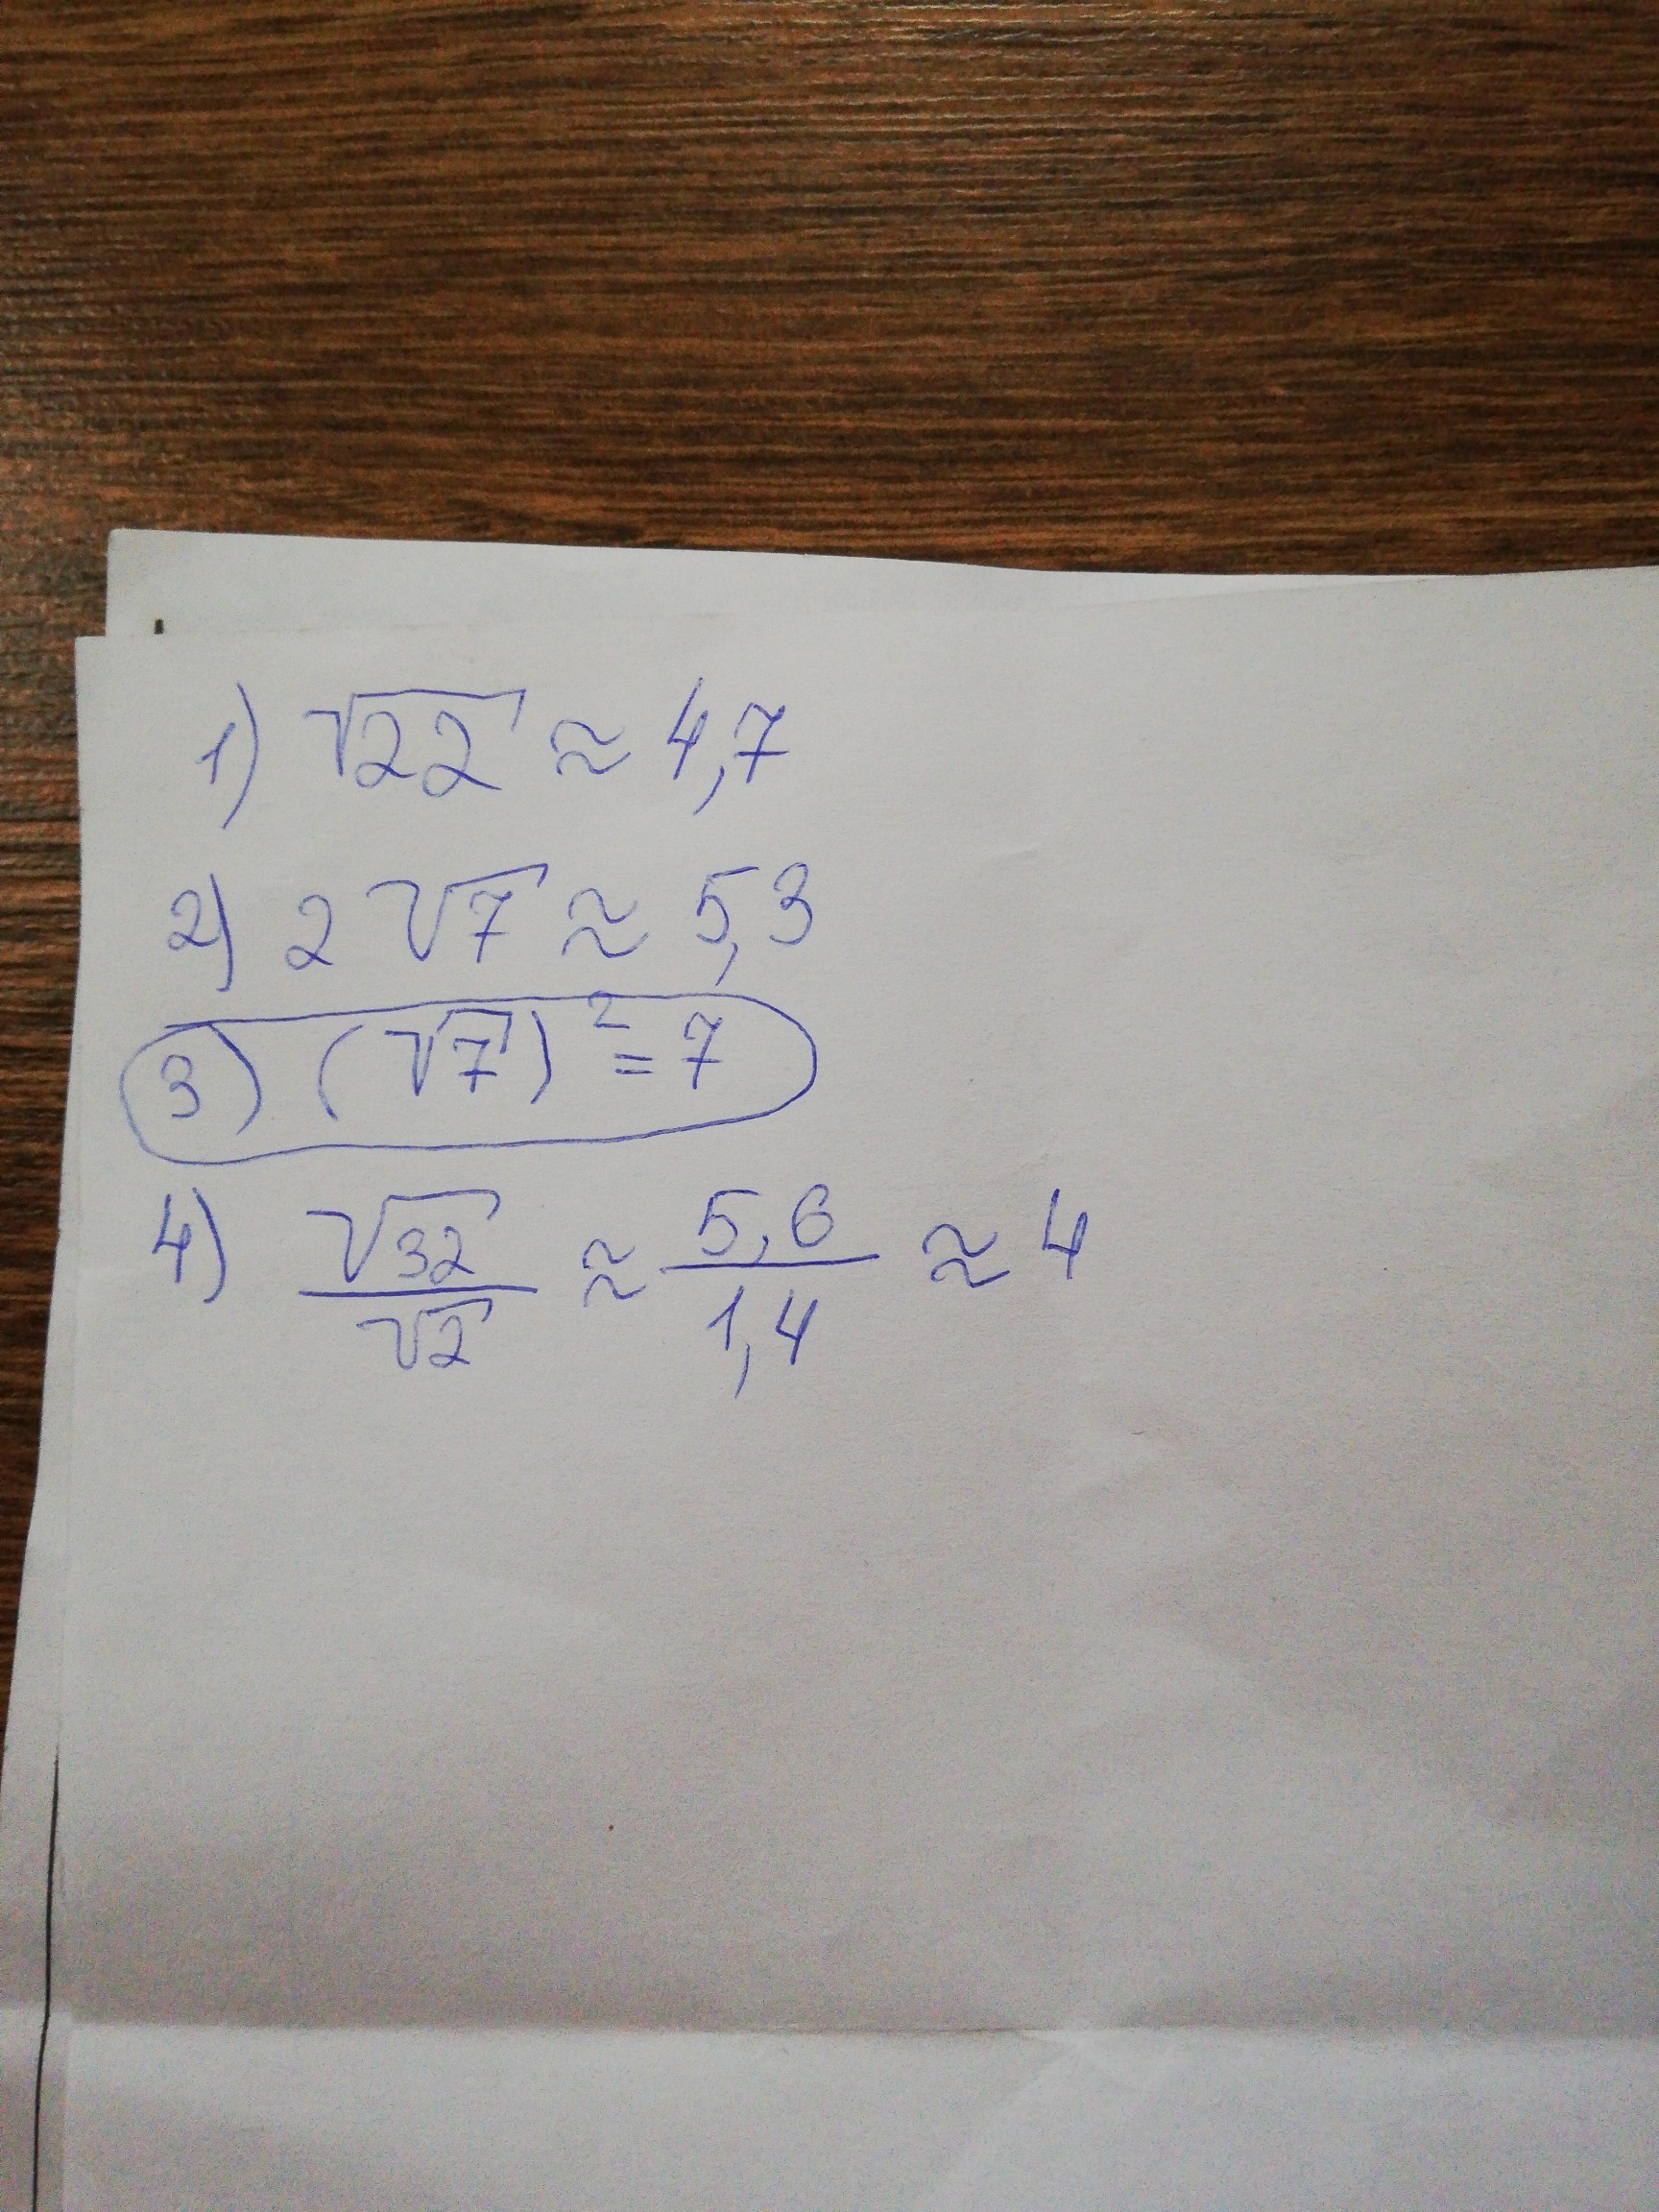 1) √22 ≈ 4,7
2) 2√7 ≈ 5,3
3) (√7)² = 7
4) √32/√2 ≈ 5,6/1,4 ≈ 4